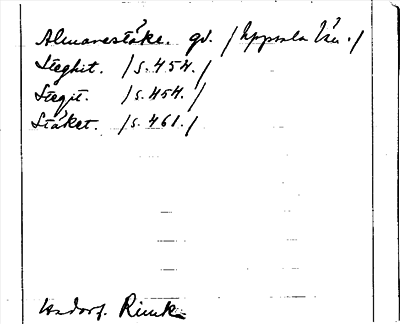 Almarestäke. gd. /Uppsala län./
Steghit. /s. 454./
Stegit. /s. 454./
Stäket. /s. 461./
Rimk